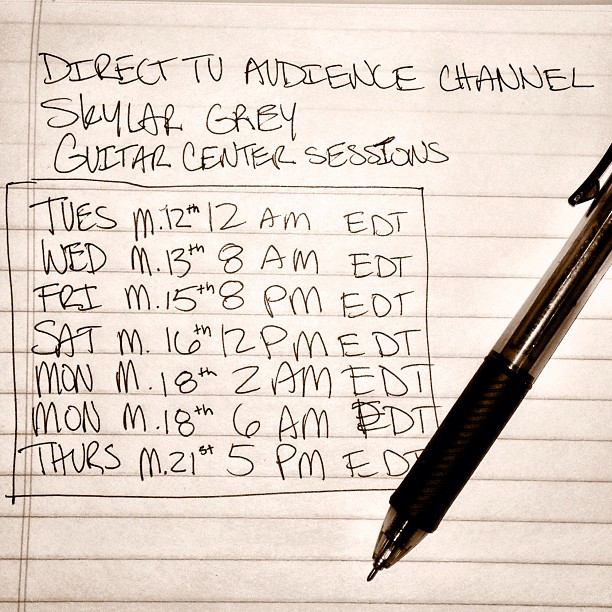 DIRECT TV AUDIENCE CHANNEL
SKYLAR GREY
GUITAR CENTER SESSIONS
TUES M.12th 12 AM EDT
WED M.13th 8 AM EDT
FRI M.15th 8 PM EDT
SAT M. 16th 12 PM EDT
MON M. 18th 2 AM EDT
MON M.18th 6 AM EDT
THURS M.21st 5 PM EDT